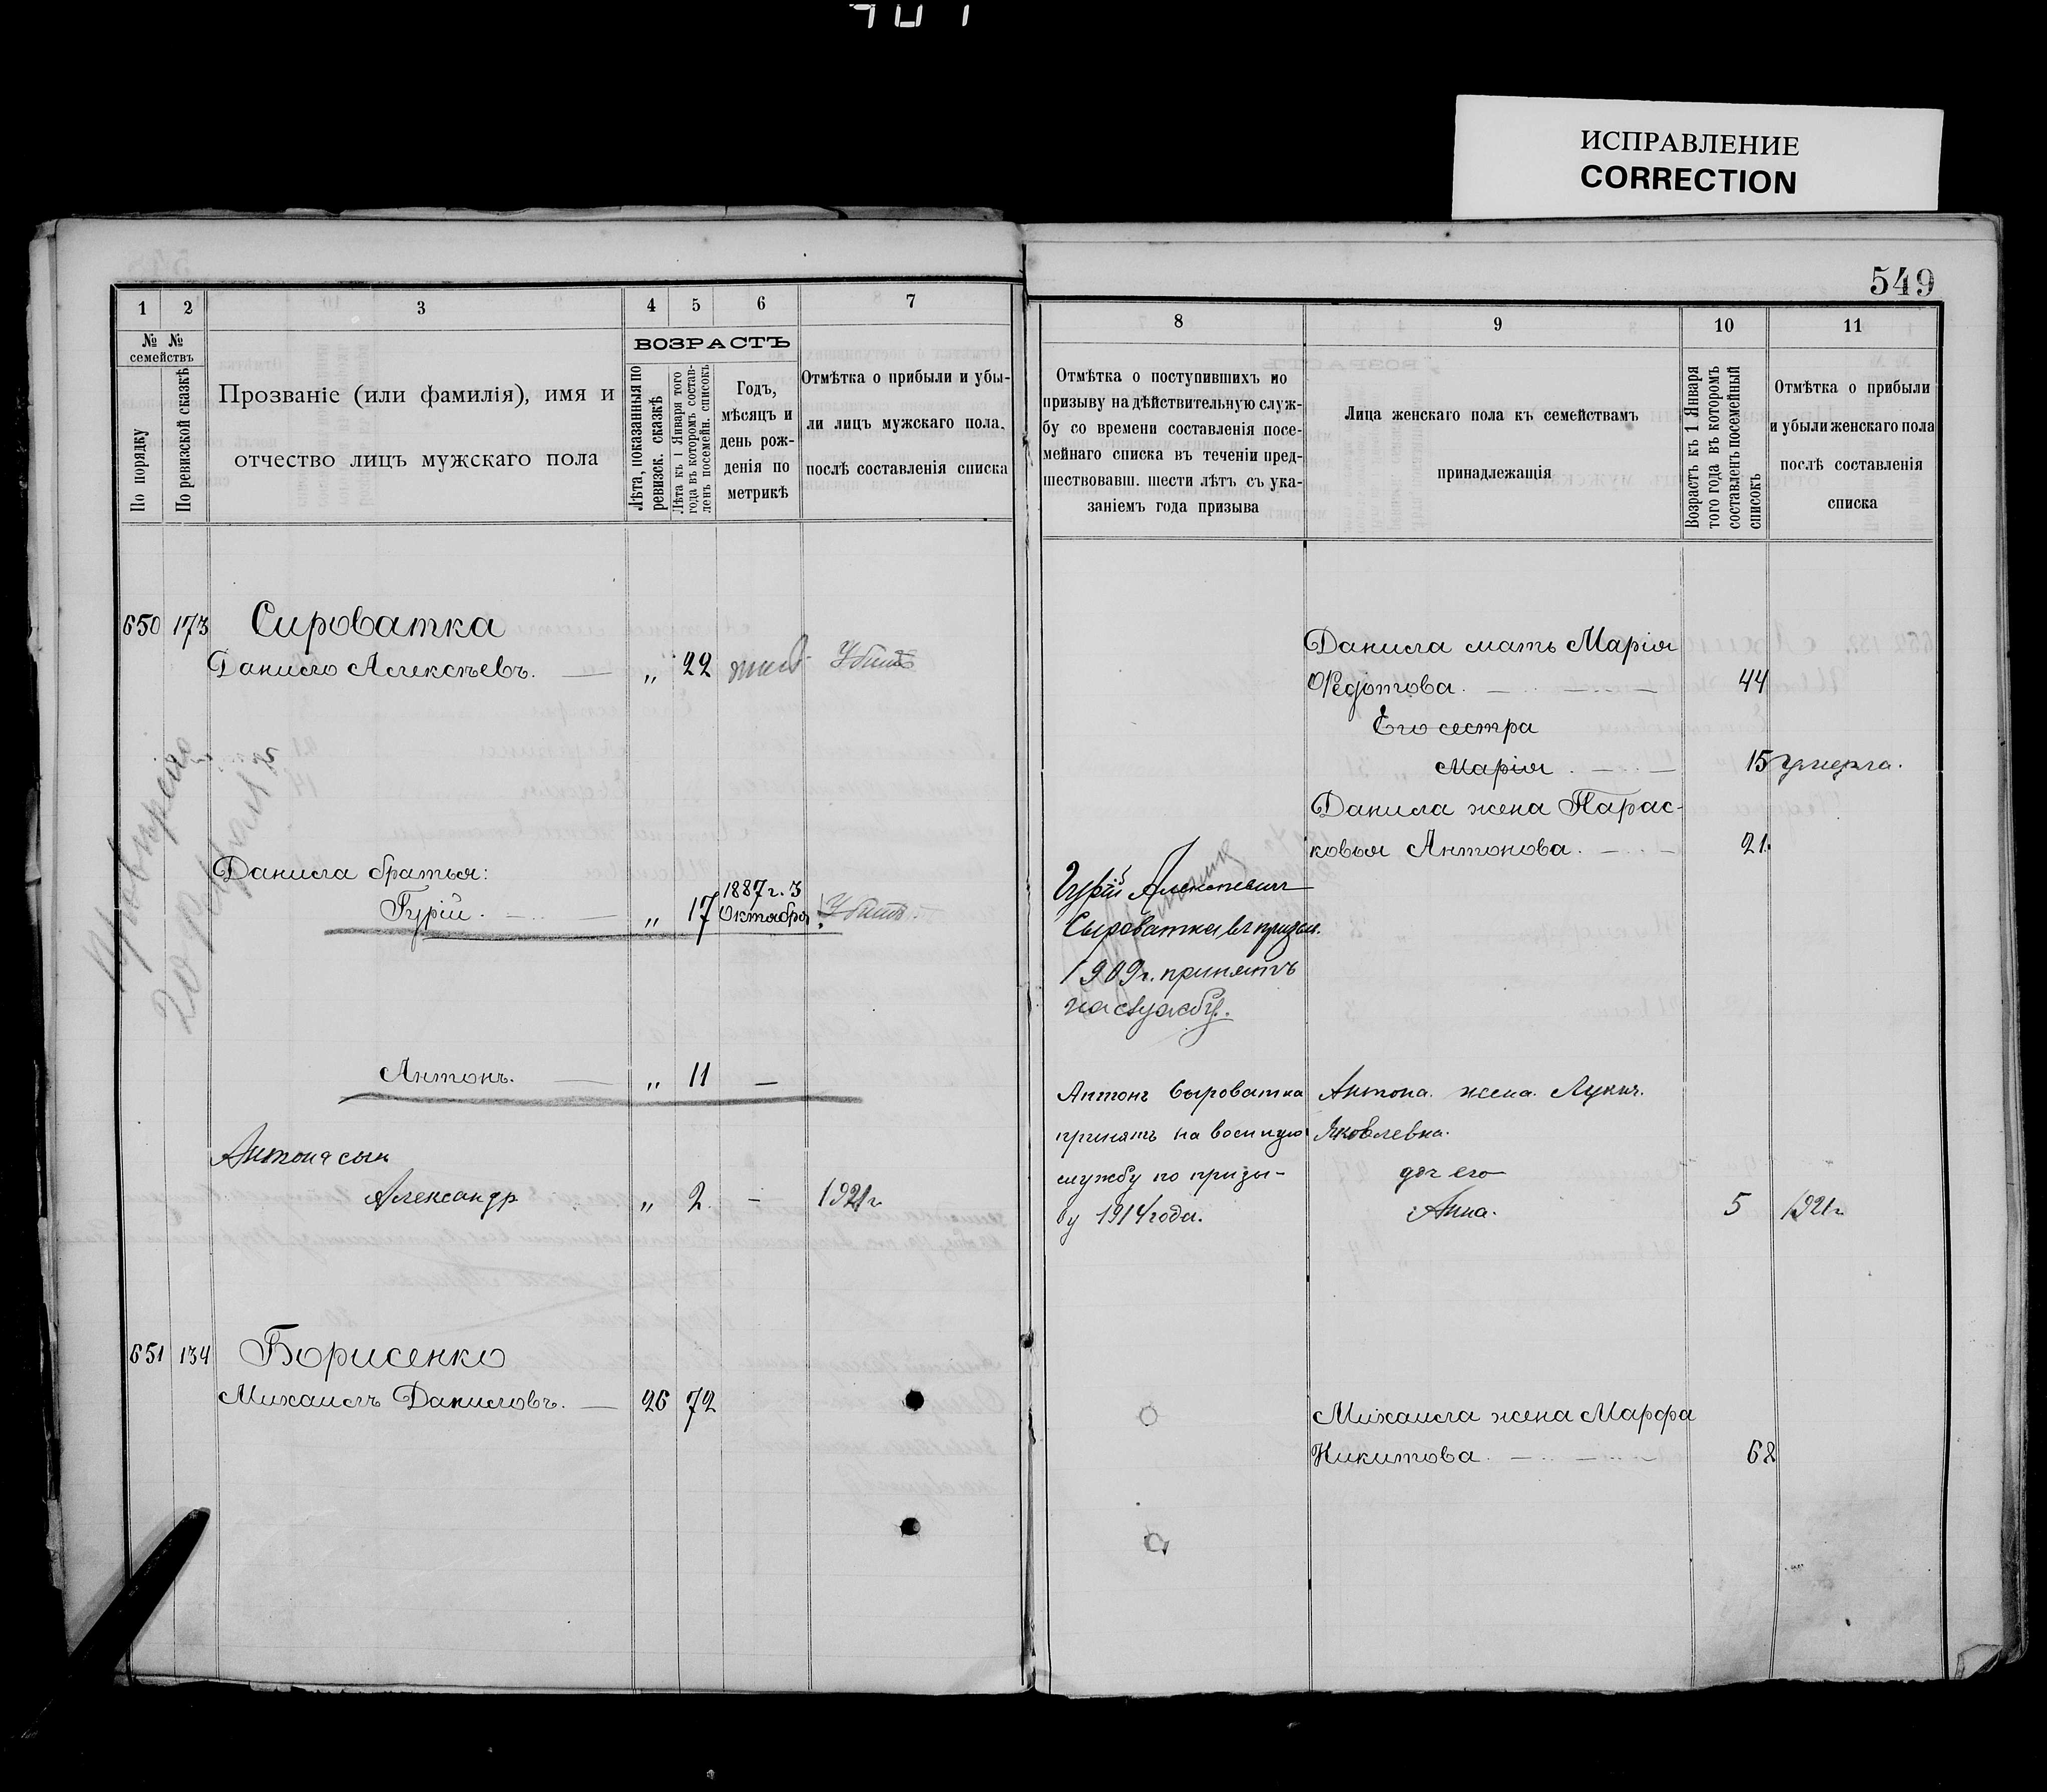 ИСПРАВЛЕНИЕ
CORRECTION
549
1 2 3 4 5 6 7
№ № семействъ
По порядку
По ревизской сказкѣ
Прозваніе (или фамилія), имя и
отчество лицъ мужскаго пола
ВОЗРАСТЪ
Лѣта, показанныя по
ревизск. сказкѣ
Лѣта къ 1 Января того
года въ которомъ состав-
ленъ посемейн. списокъ
Годъ,
мѣсяцъ и
день рож-
денія по
метрикѣ
Отмѣтка о прибыли и убы-
ли лицъ мужскаго пола,
послѣ составленія списка
650 173 Сироватка
Данило Алексѣевъ. „ 22 Убитъ
Данила братья:
Гурій. „ 17 1887 г. 3 Октября Убитъ.
Антонъ. „ 11 —
Антона сын
Александр „ 2. - 1921 г
651 134 Борисенко
Михаилъ Даниловъ. 26 72
8 9 10 11
Отмѣтка о поступившихъ по
призыву на дѣйствительную служ-
бу со времени составленія посе-
мейнаго списка въ теченіи пред-
шествовавш. шести лѣтъ съ ука-
заніемъ года призыва
Лица женскаго пола къ семействамъ
принадлежащія
Возрастъ къ 1 Января
того года въ которомъ
составленъ посемейный
списокъ
Отмѣтка о прибыли
и убыли женскаго пола
послѣ составленія
списка
Данила мать Марія
Ѳедотова. 44
Его сестра
Марія. 15 умерла.
Данила жена Парас-
ковья Антонова. 21.
Гурій Алексѣевич
Сыроватка в призыв.
1909 г. принятъ
на службу.
Антонъ Сыроватка
принятъ на военную
службу по призы-
ву 1914 года.
Антона. жена. Лукия.
Яковлевна.
доч его
Анна. 5 1921 г
Михаила жена Марфа
Никитова. 68